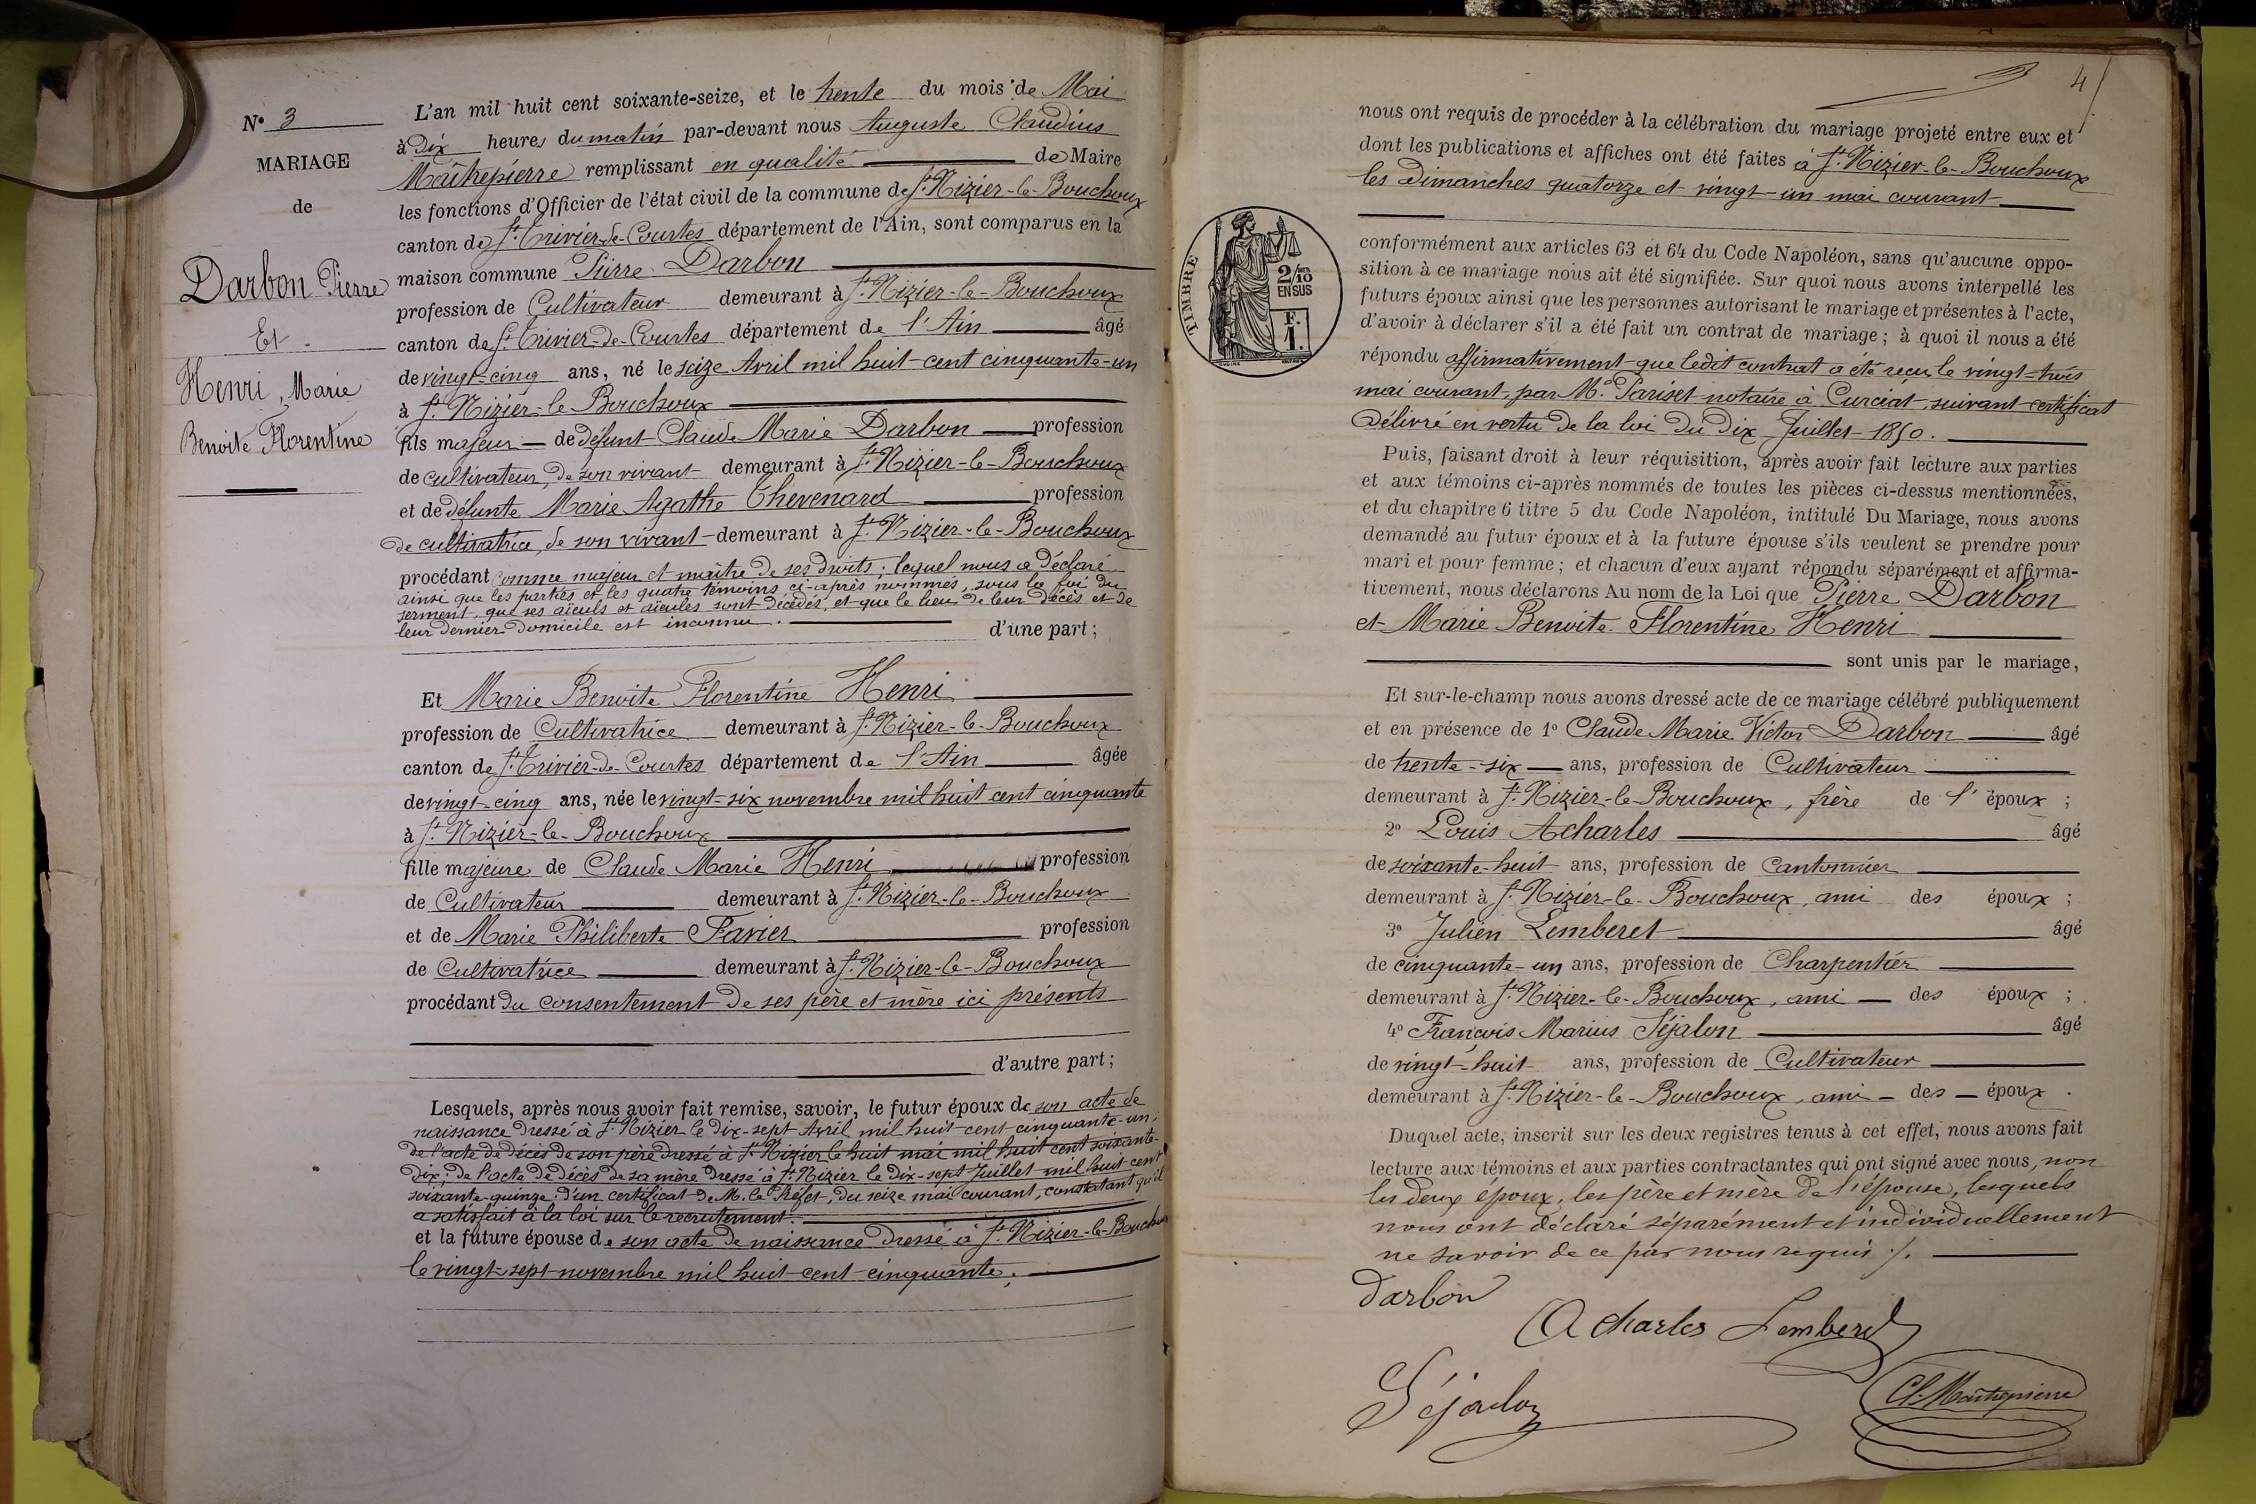 N° 3
MARIAGE
de
Darbon Pierre
Et
Henri, Marie
Benoite Florentine
L'an mil huit cent soixante-seize, et le trente du mois de Mai
à dix heures du matin par-devant nous Auguste Claudius
Maîtrepierre remplissant en qualité de Maire
les fonctions d'Officier de l'état civil de la commune de St. Nizier-le-Bouchoux
canton de St. Trivier-de-Courtes département de l'Ain, sont comparus en la
maison commune Pierre Darbon
profession de Cultivateur demeurant à St. Nizier-le-Bouchoux
canton de St. Trivier-de-Courtes département de l'Ain âgé
de vingt-cinq ans, né le seize Avril mil huit-cent cinquante-un
à St. Nizier-le Bouchoux
fils majeur de défunt Claude Marie Darbon profession
de cultivateur, de son vivant demeurant à St. Nizier-le-Bouchoux
et de défunte Marie Agathe Thevenard profession
de cultivatrice, de son vivant demeurant à St. Nizier-le-Bouchoux
procédant comme majeur et maître de ses droits; lequel nous a déclaré
ainsi que les parties et les quatre témoins ci-après nommés, sous la foi du
serment, que ses aïeuls et aïeules sont décédés, et que le lieu de leur décès et de
leur dernier domicile est inconnu.
d'une part;
Et Marie Benoite Florentine Henri
profession de Cultivatrice demeurant à St. Nizier-le-Bouchoux
canton de St. Trivier-de-Courtes département de l'Ain âgée
de vingt-cinq ans, née le vingt-six novembre mil huit cent cinquante
à St. Nizier-le-Bouchoux
fille majeure de Claude Marie Henri profession
de Cultivateur demeurant à St. Nizier-le-Bouchoux
et de Marie Philiberte Favier profession
de Cultivatrice demeurant à St. Nizier-le-Bouchoux
procédant du consentement de ses père et mère ici présents
d'autre part;
Lesquels, après nous avoir fait remise, savoir, le futur époux de son acte de
naissance dressé à St. Nizier le dix-sept Avril mil huit-cent cinquante-un;
de l'acte de décès de son père dressé à St. Nizier le huit mai mil huit cent soixante-
dix; de l'acte de décès de sa mère dressé à St. Nizier le dix-sept Juillet mil huit cent
soixante-quinze; d'un certificat de M. le Préfet, du seize mai courant, constatant qu'il
a satisfait à la loi sur le recrutement.
et la future épouse de son acte de naissance dressé à St. Nizier-le-Bouchoux
le vingt-sept novembre mil huit-cent cinquante.
4
nous ont requis de procéder à la célébration du mariage projeté entre eux et
dont les publications et affiches ont été faites à St. Nizier-le-Bouchoux
les dimanches quatorze et vingt-un mai courant
TIMBRE
2/10
EN SUS
F.
1.
conformément aux articles 63 et 64 du Code Napoléon, sans qu'aucune oppo-
sition à ce mariage nous ait été signifiée. Sur quoi nous avons interpellé les
futurs époux ainsi que les personnes autorisant le mariage et présentes à l'acte,
d'avoir à déclarer s'il a été fait un contrat de mariage; à quoi il nous a été
répondu affirmativement que ledit contrat a été reçu le vingt-trois
mai courant, par Me. Pariset notaire à Curciat, suivant certificat
délivré en vertu de la loi du dix Juillet 1850.
Puis, faisant droit à leur réquisition, après avoir fait lecture aux parties
et aux témoins ci-après nommés de toutes les pièces ci-dessus mentionnées,
et du chapitre 6 titre 5 du Code Napoléon, intitulé Du Mariage, nous avons
demandé au futur époux et à la future épouse s'ils veulent se prendre pour
mari et pour femme; et chacun d'eux ayant répondu séparément et affirma-
tivement, nous déclarons Au nom de la Loi que Pierre Darbon
et Marie Benoite Florentine Henri
sont unis par le mariage,
Et sur-le-champ nous avons dressé acte de ce mariage célébré publiquement
et en présence de 1° Claude Marie Victor Darbon âgé
de trente-six ans, profession de Cultivateur
demeurant à St. Nizier-le-Bouchoux, frère de l'époux;
2° Louis Acharles âgé
de soixante-huit ans, profession de Cantonnier
demeurant à St. Nizier-le-Bouchoux, ami des époux;
3° Julien Lemberet âgé
de cinquante-un ans, profession de Charpentier
demeurant à St. Nizier-le-Bouchoux, ami des époux;
4° François Marius Séjalon âgé
de vingt-huit ans, profession de Cultivateur
demeurant à St. Nizier-le-Bouchoux, ami des époux.
Duquel acte, inscrit sur les deux registres tenus à cet effet, nous avons fait
lecture aux témoins et aux parties contractantes qui ont signé avec nous, non
les deux époux, les père et mère de l'épouse, lesquels
nous ont déclaré séparément et individuellement
ne savoir de ce par nous requis ./.
Darbon
Acharles Lemberet
Séjalon
Cl. Maitrepierre